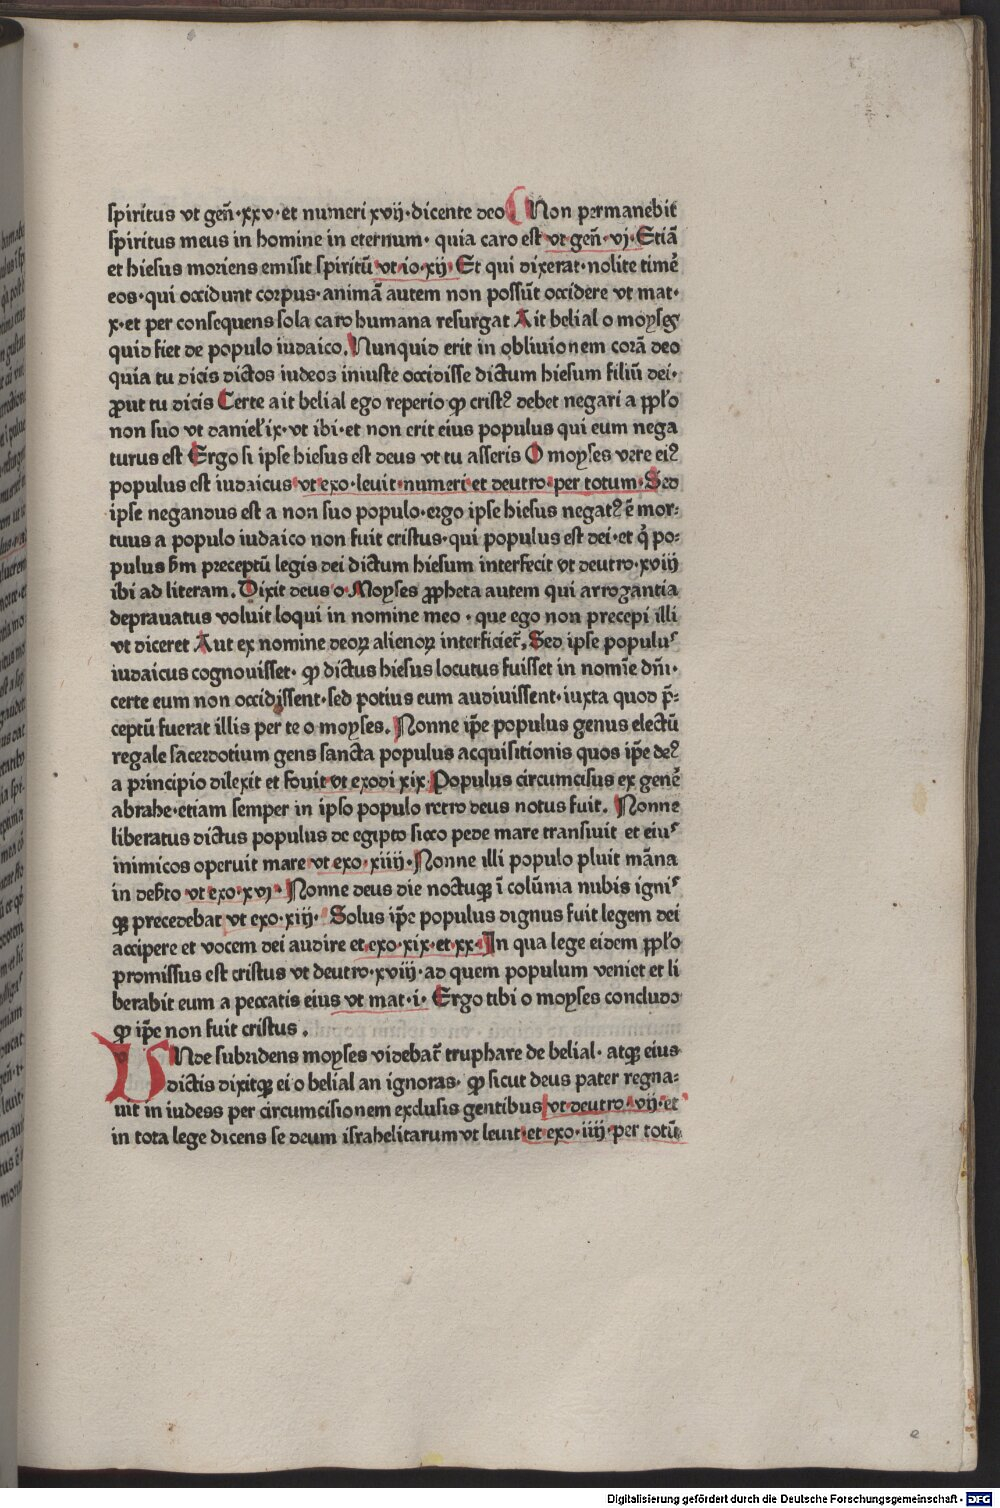 spiritus vt gen̄·xxv·et numeri xvij·dicente deo Non permanebit
spiritus meus in homine in eternum· quia caro est vt gen̄·vj·Etiā
et hiesus moriens emisit spiritū vt io·xij·Et qui dixerat·nolite timē
eos·qui occidunt corpus·animā autem non possūt occidere vt mat·
x·et per consequens sola caro humana resurgat Ait belial o moyses
quid fiet de populo iudaico. Nunquid erit in obliuionem corā deo
quia tu dicis dictos iudeos iniuste occidisse dictum hiesum filiū dei·
ꝓut tu dicis Certe ait belial ego reperio ꝙ cristꝰ debet negari a pp̄lo
non suo vt danieł ix·vt ibi·et non erit eius populus qui eum nega
turus est Ergo si ipse hiesus est deus vt tu asseris O moyses vere eiꝰ
populus est iudaicus vt exo·leuit·numeri et deutro·per totum·Sed
ipse negandus est a non suo populo·ergo ipse hiesus negatꝰ ē mor⸗
tuus a populo iudaico non fuit cristus·qui populus est dei·et q̇ po⸗
pulus ẜm preceptū legis dei dictum hiesum interfecit vt deutro·xviij
ibi ad literam. Dixit deus o Moyses ꝓpheta autem qui arrogantia
deprauatus voluit loqui in nomine meo · que ego non precepi illi
vt diceret Aut ex nomine deoꝝ alienoꝝ interficiet̄. Sed ipse populuˢ
iudaicus cognouisset· ꝙ dictus hiesus locutus fuisset in nomīe dn̄i·
certe eum non occidissent·sed potius eum audiuissent·iuxta quod p̄⸗
ceptū fuerat illis per te o moyses. Nonne ip̄e populus genus electū
regale sacerdotium gens sancta populus acquisitionis quos ip̄e deꝰ
a principio dilexit et fouit vt exodi xix Populus circumcisus ex genē
abrahe·etiam semper in ipso populo retro deus notus fuit. Nonne
liberatus dictus populus de egipto sicco pede mare transiuit et eiuˢ
inimicos operuit mare vt exo·xiiij·Nonne illi populo pluit māna
in deẜto vt exo·xvj· Nonne deus die noctuqꝫ ī colūnia nubis igniˢ
qꝫ precedebat vt exo·xiij· Solus ip̄e populus dignus fuit legem dei
accipere et vocem dei audire et exo·xix·et xx·In qua lege eidem pp̄lo
promissus est cristus vt deutro·xviij·ad quem populum veniet et li
berabit eum a peccatis eius vt mat·i· Ergo tibi o moyses concludo
ꝙ ip̄e non fuit cristus .
VNde subridens moyses videbat̄ truphare de belial· atqꝫ eius
dictis dixitqꝫ ei o belial an ignoras· ꝙ sicut deus pater regna⸗
uit in iudess per circumcisionem exclusis gentibus vt deutro·vij·et
in tota lege dicens se deum israhelitarum vt leuit·et exo·iiij·per totū
e
Digitalisierung gefördert durch die Deutsche Forschungsgemeinschaft · DFG